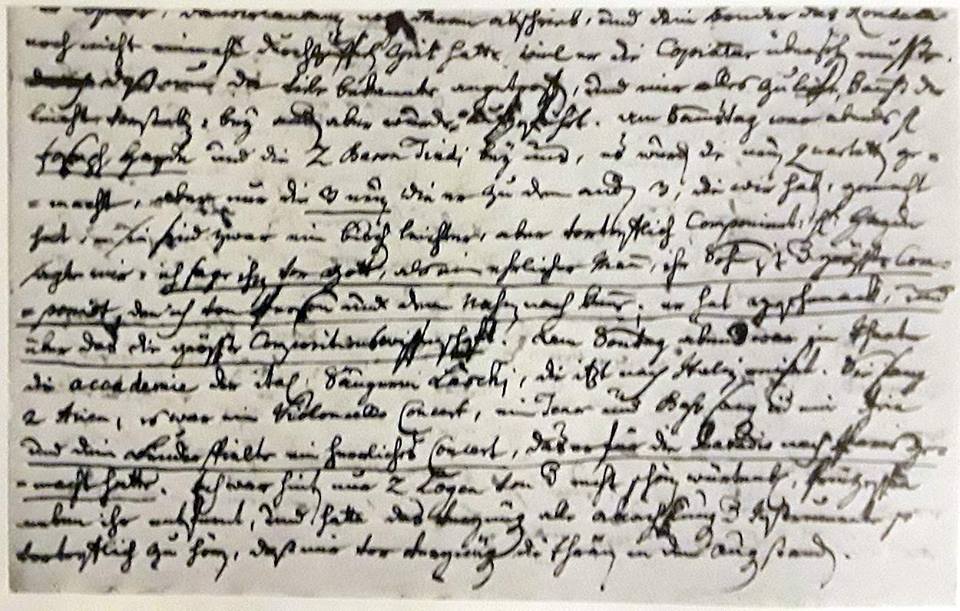 noch daran abschrieb, und dein Bruder das Rondeau
noch nicht einmahl durchzuspielen Zeit hatte, weil er die Copiatur übersehen musste.
daß nun viele bekannte angetroffen, und mir alles zulief, kanst du
leicht vorstellen: bey andern aber wurde aufgeführt. am Samstag war abends H:
Joseph Haydn und die 2 Baron Tindi bey uns, es wurden die neuen quartetten ge=
=macht, aber nur die 3 neuen die er zu den andern 3, die wir haben, gemacht
hat, sie sind zwar ein bischen leichter, aber vortrefflich Componiert. H: Haydn
sagte mir: ich sage ihnen vor Gott, als ein ehrlicher Mann, ihr Sohn ist der größte Com=
=ponist, den ich von Person und dem Nahmen nach kenne: er hat geschmack, und
über das die größte Compositionswissenschaft. am Sontag abend war im theater
die accademie der ital: Sängerin Laschi, die itzt nach Italien reiset. Sie sang
2 Arien, es war ein Violoncello Concert, ein Tenor und Bass sang ieder eine Aria
und dein Bruder spielte ein herrliches Concert, das er für die Paradis nach Paris ge=
=macht hatte. Ich war hinten nur 2 Logen von der recht schönen würtemb:
neben ihr entfernt, und hatte das vergnügen alle der Instrumente so
vortrefflich zu hören, daß mir vor vergnügen die thränen in den augen standen.